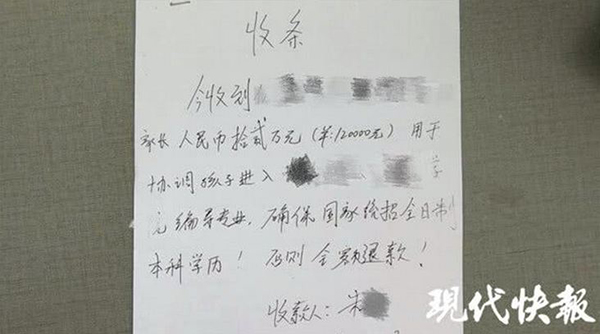 收条
今收到
家长人民币拾贰万元(¥:120000元)用于
协调孩子进入 学
院编导专业,确保国家统招全日制
本科学历!否则全额退款!
收款人:朱
现代快報